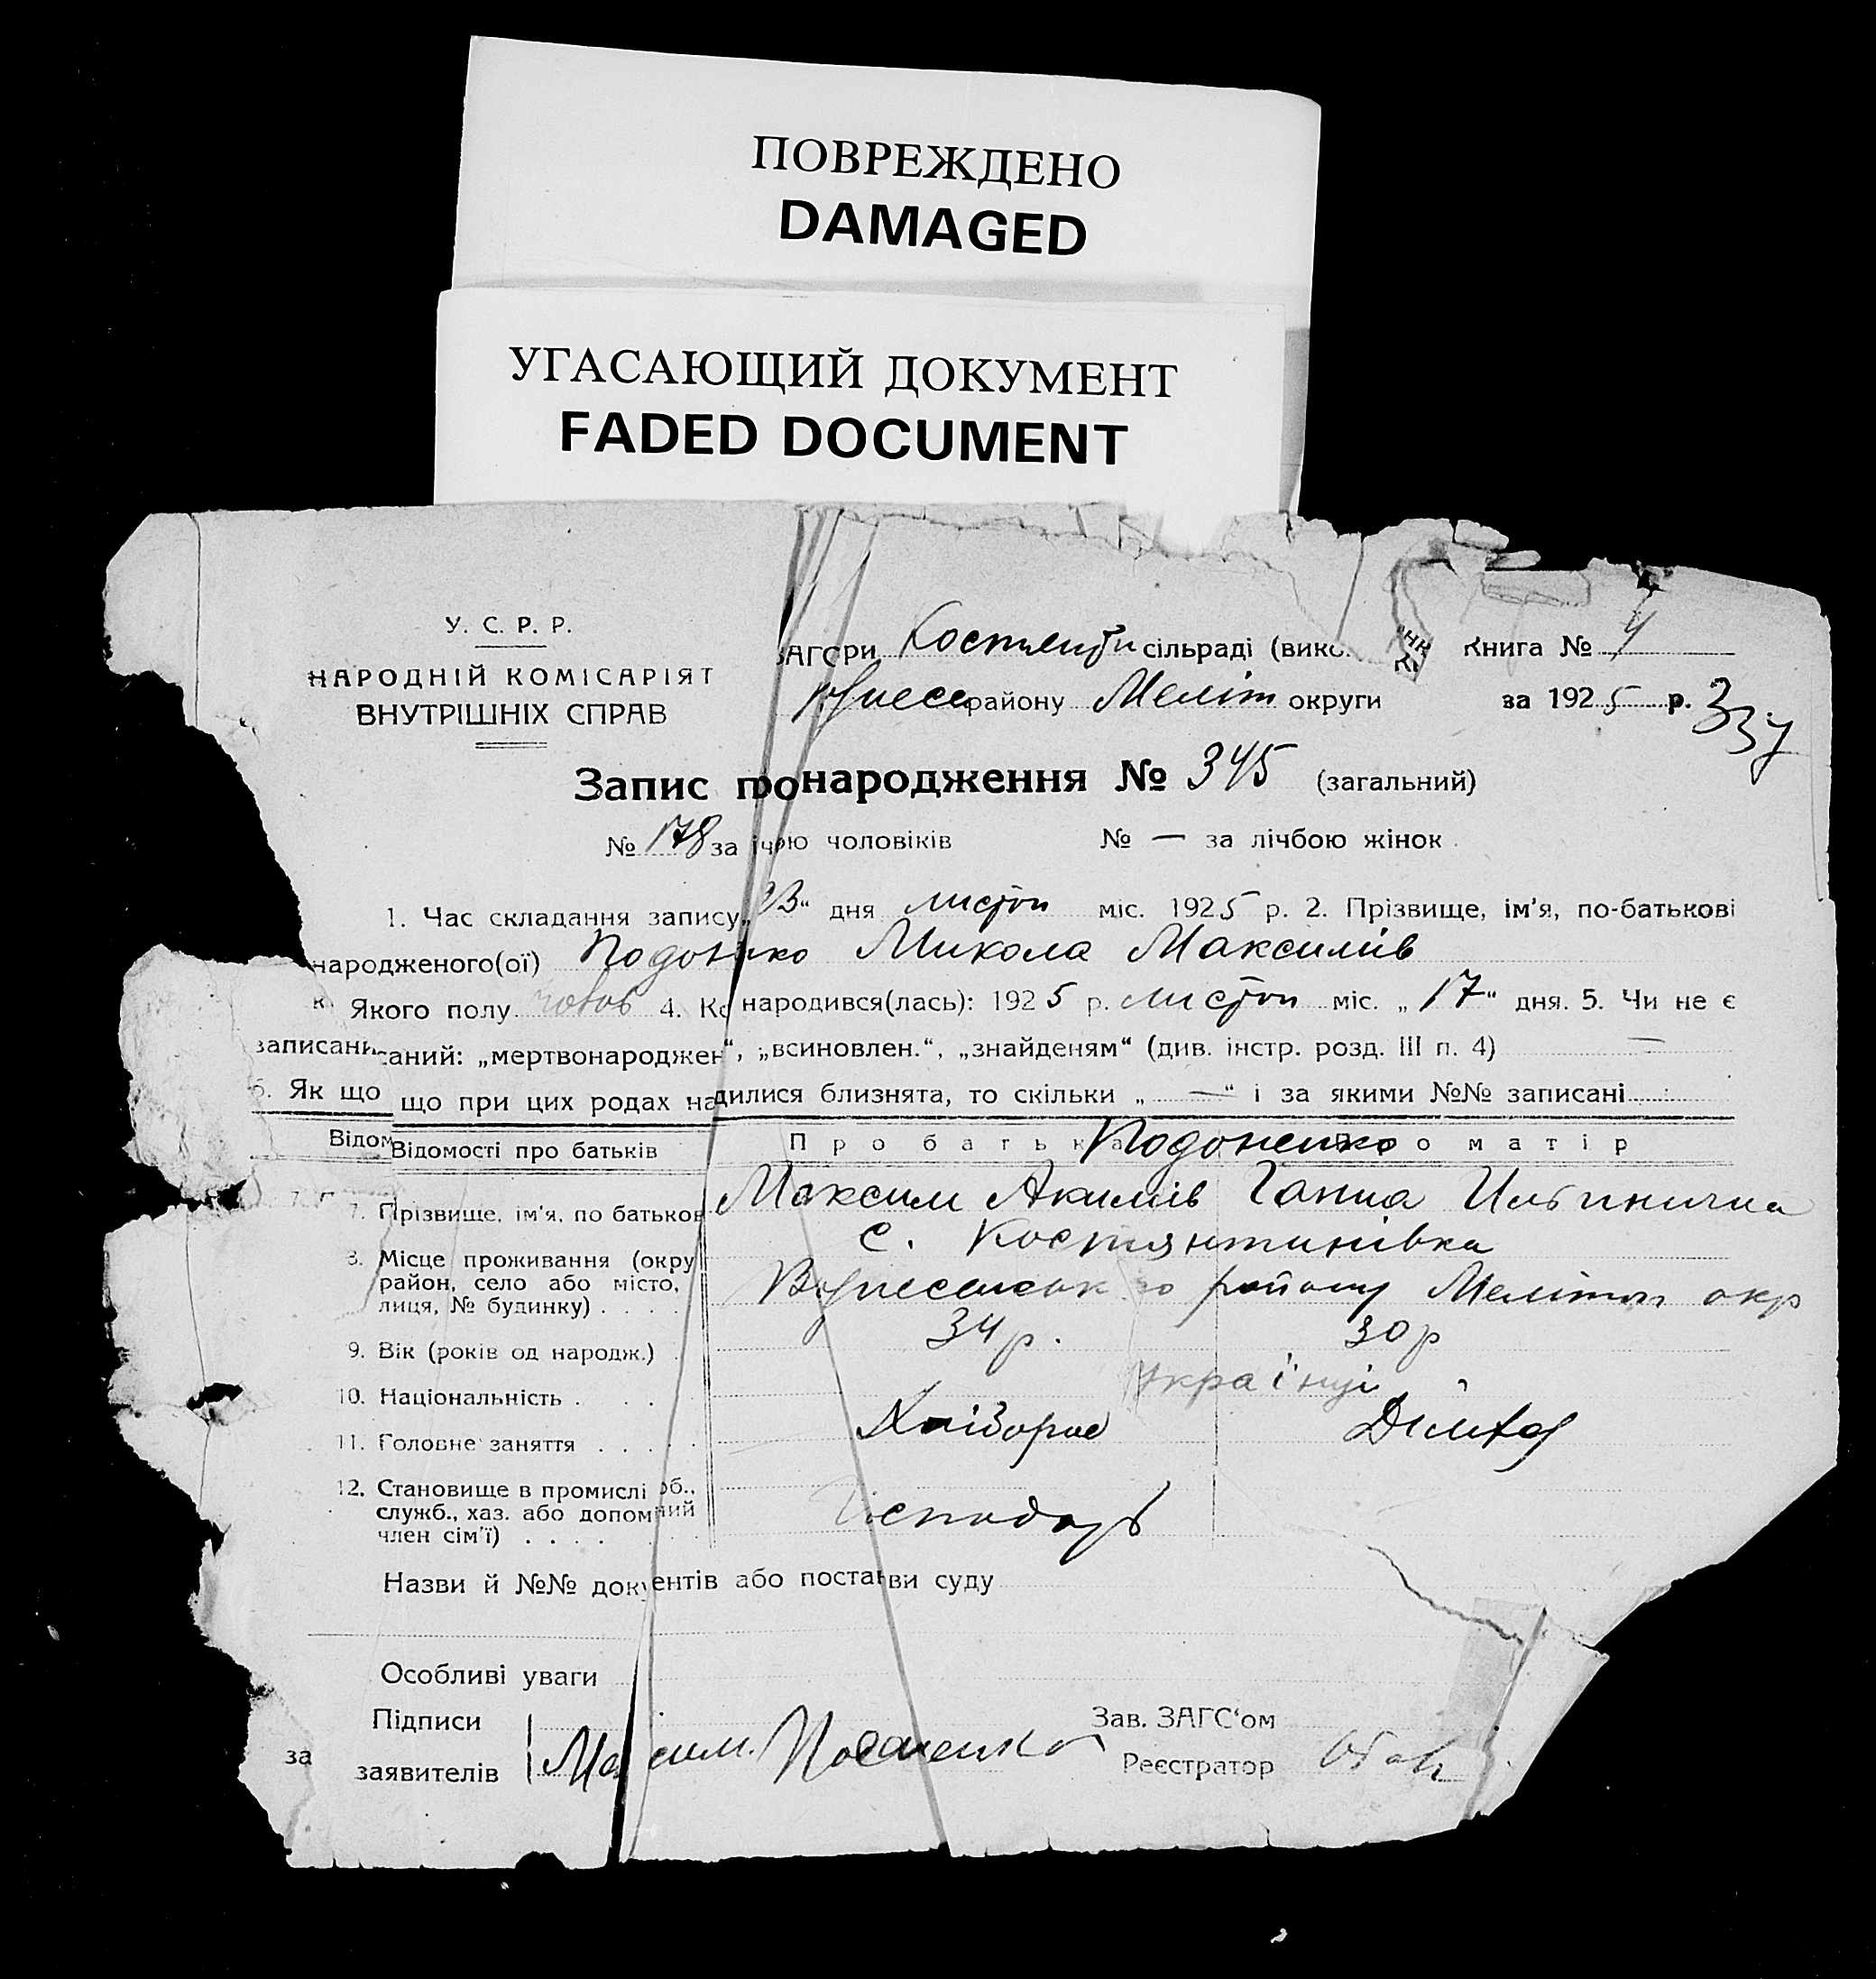 ПОВРЕЖДЕНО
DAMAGED
УГАСАЮЩИЙ ДОКУМЕНТ
FADED DOCUMENT
У. С. Р. Р.
НАРОДНІЙ КОМІСАРІЯТ
ВНУТРІШНІХ СПРАВ
сільраді (вико
Книга № 4
району Меліт округи за 1925 р.
Запис про народження № 345 (загальний)
№ 178 за чоловіків № — за лічбою жінок
1. Час складання запису „ “ дня листоп міс. 1925 р. 2. Прізвище, ім'я, по-батькові
народженого(ої) Микола Максимів
Якого полу 4. народився(лась): 1925 р. листоп міс. „17“ дня. 5. Чи не є
записани саний: „мертвонароджен“, „всиновлен.“, „знайденям“ (див. інстр. розд. III п. 4) —
6. Як що що при цих родах на дилися близнята, то скільки „ — “ і за якими №№ записані
Відом Відомості про батьків Про батька Подоненко о матір
7. Прізвище, ім'я, по батьков Максим Акимів Ганна
8. Місце проживання (окру с. Костянтинівка
район, село або місто,
лиця, № будинку) району Мелітоп окр
9. Вік (років од народж.) 34 р. 30 р
10. Національність українці
11. Головне заняття Хлібороб
12. Становище в промислі об.,
служб., хаз. або допомі ний
член сім'ї) Господарь
Назви й №№ документів або постанви суду
Особливі уваги
Підписи
за заявителів
Зав. ЗАГС'ом
Реєстратор